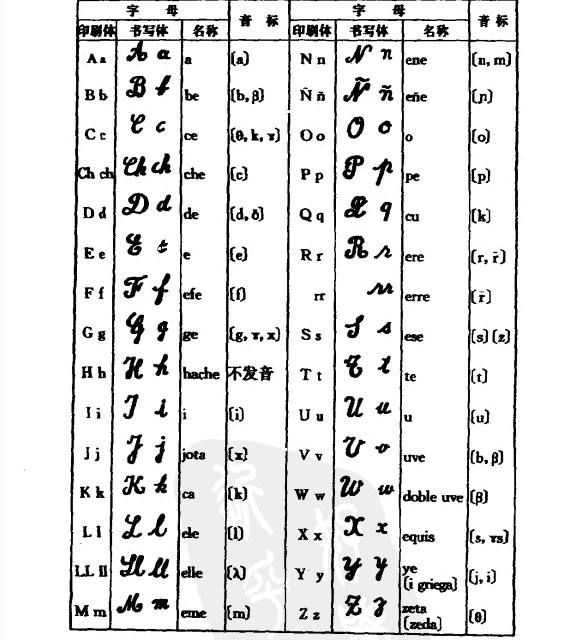 字 母 音 标 字 母 音 标
印刷体 书写体 名称 印刷体 书写体 名称
A a A a a [a] N n N n ene [n, m]
B b B b be [b, β] Ñ ñ Ñ ñ eñe [ɲ]
C c C c ce [θ, k, ɤ] O o O o o [o]
Ch ch Ch ch che [c] P p P p pe [p]
D d D d de [d, δ] Q q Q q cu [k]
E e E e e [e] R r R r ere [r, r̄]
F f F f efe [f] rr rr erre [r̄]
G g G g ge [g, ɤ, x] S s S s ese [s] [z]
H h H h hache 不发音 T t T t te [t]
I i I i i [i] U u U u u [u]
J j J j jota [x] V v V v uve [b, β]
K k K k ca [k] W w W w doble uve [β]
L l L l ele [l] X x X x equis [s, ɤs]
LL ll Ll ll elle [λ] Y y Y y ye [i griega] [j, i]
M m M m eme [m] Z z Z z zeta [zeda] [θ]